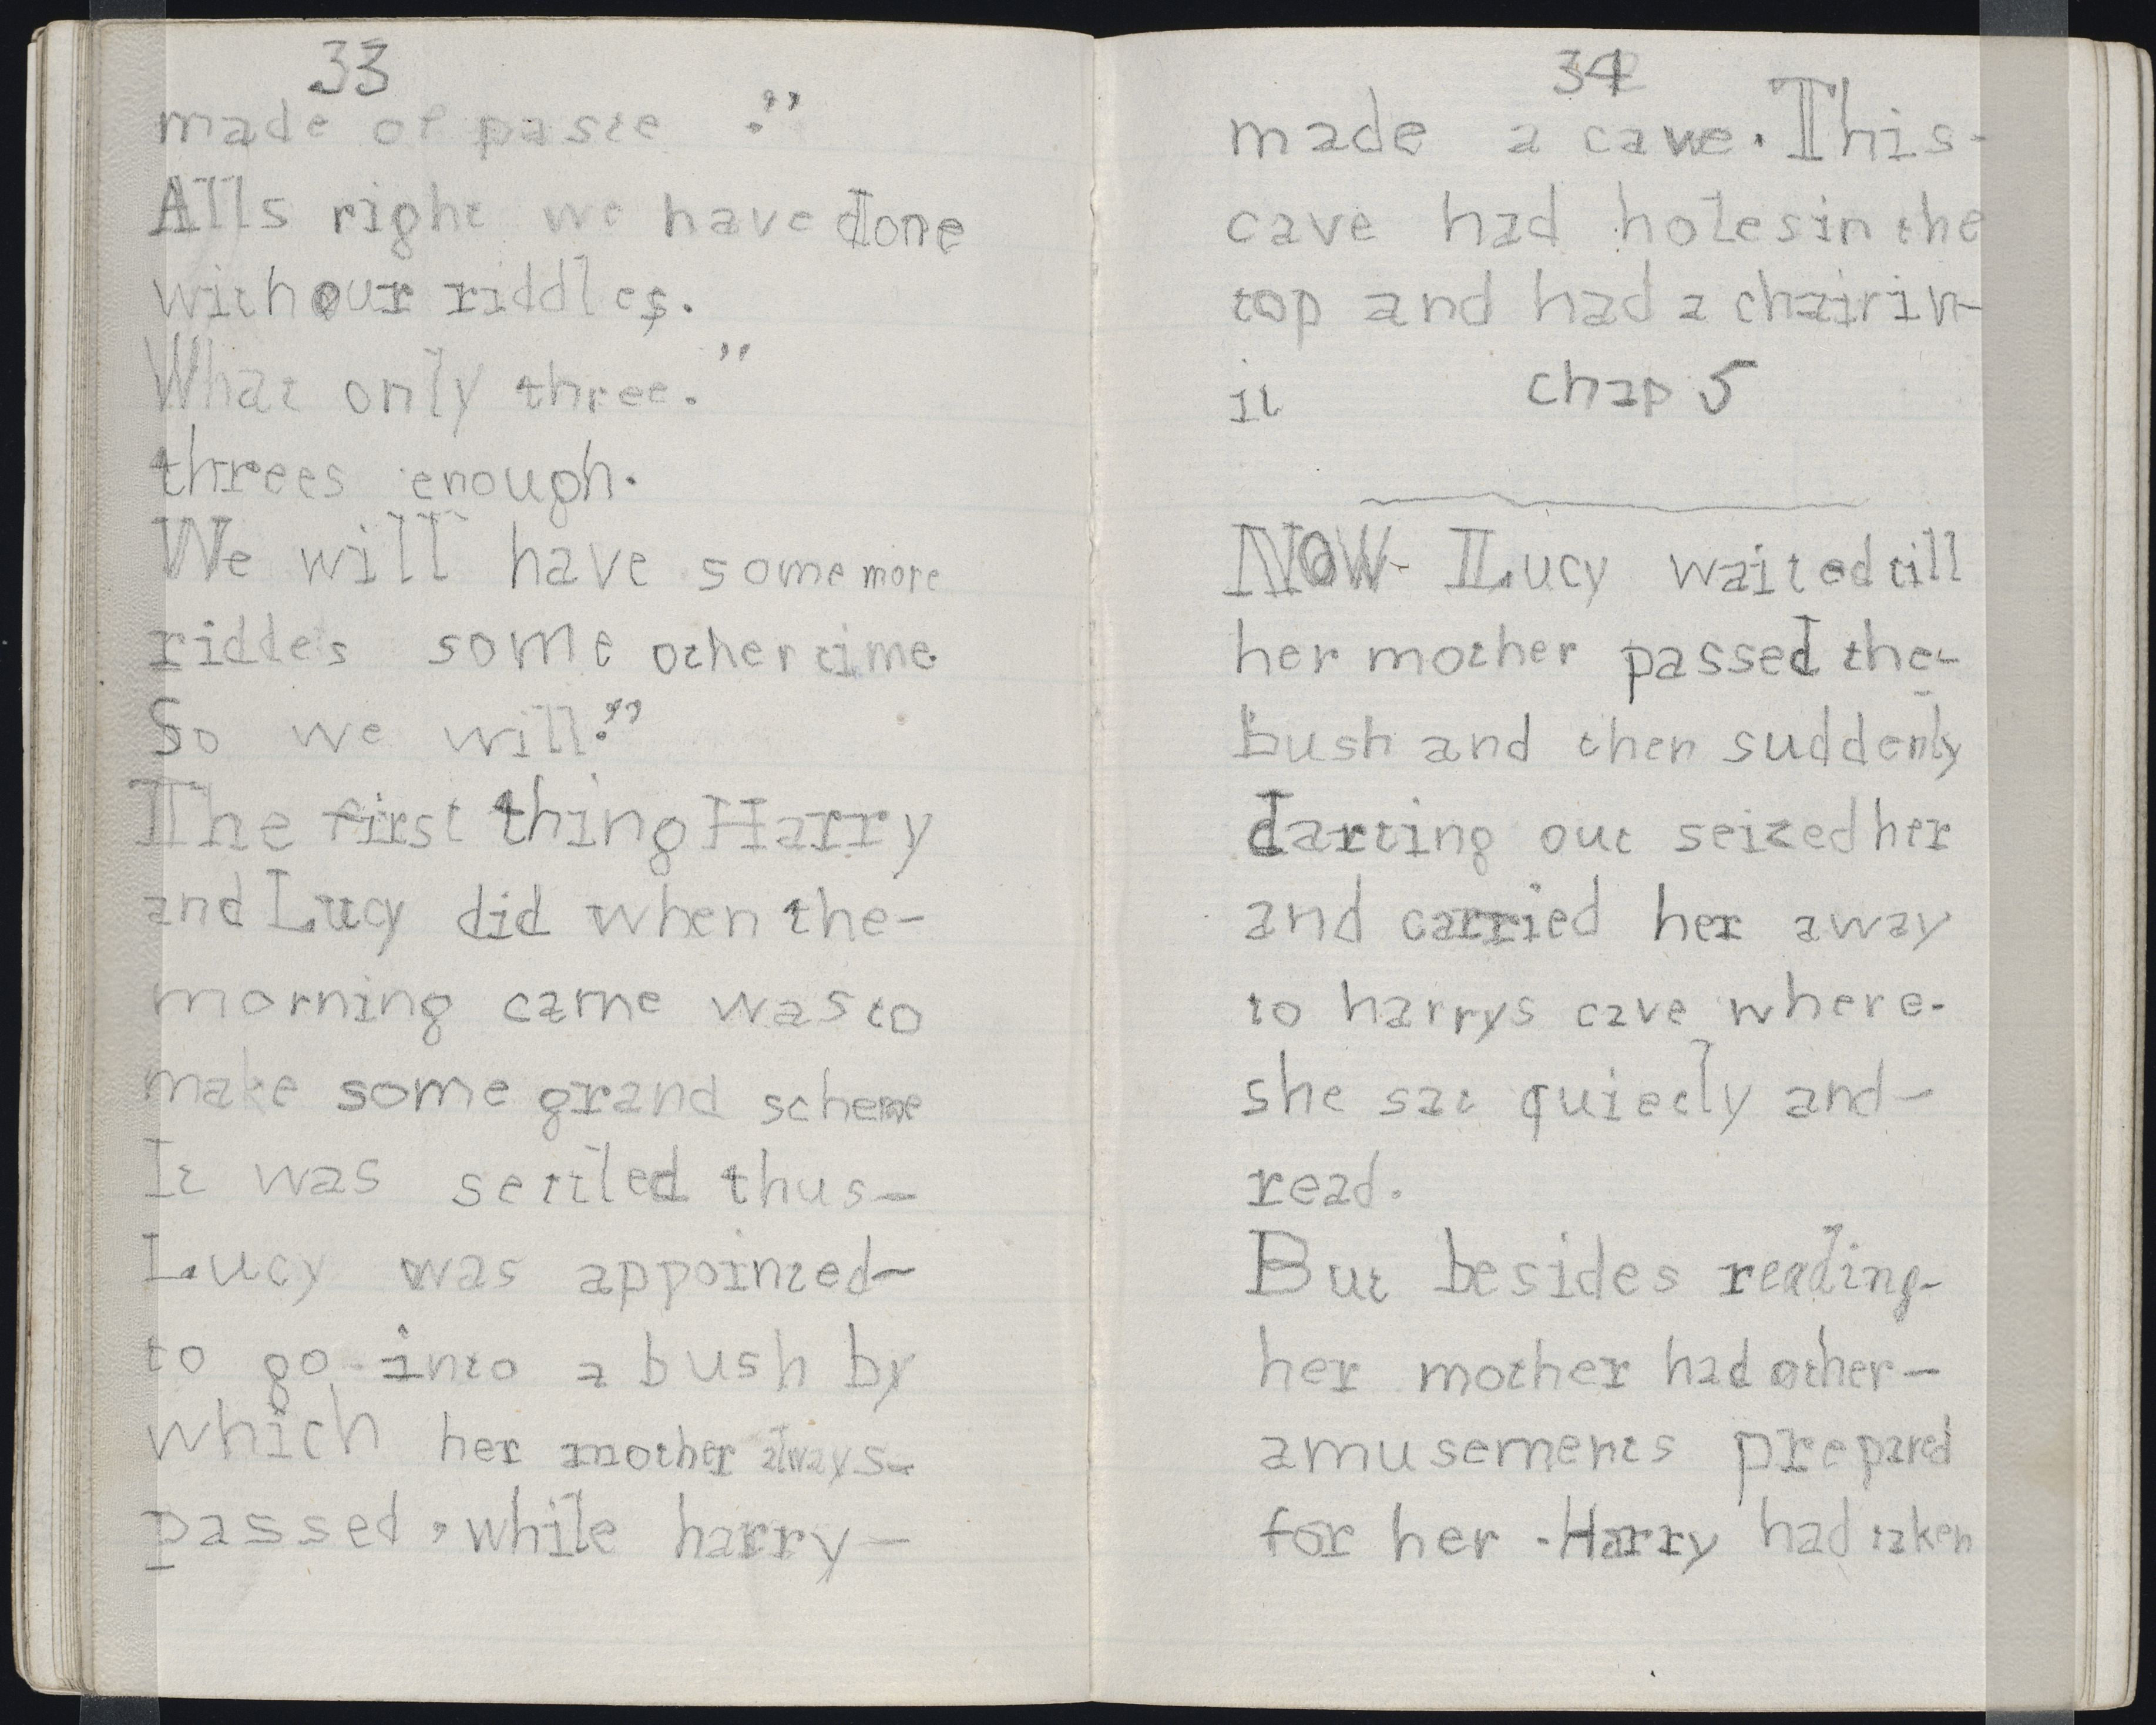 33
made of paste ."
Alls right we have done
with our riddles.
What only three."
threes enough.
We will have some more
riddles some other time
So we will."
The first thing Harry
and Lucy did when the-
morning came was to
make some grand scheme
It was settled thus-
Lucy was appointed-
to go into a bush by
which her mother always-
passed, while harry-
34
made a cave. This-
cave had holes in the
top and had a chair in-
it chap 5
Now Lucy waited till
her mother passed the-
bush and then suddenly
darting out seized her
and carried her away
to harrys cave where-
she sat quietly and-
read.
But besides reading-
her mother had other-
amusements prepared
for her. Harry had taken